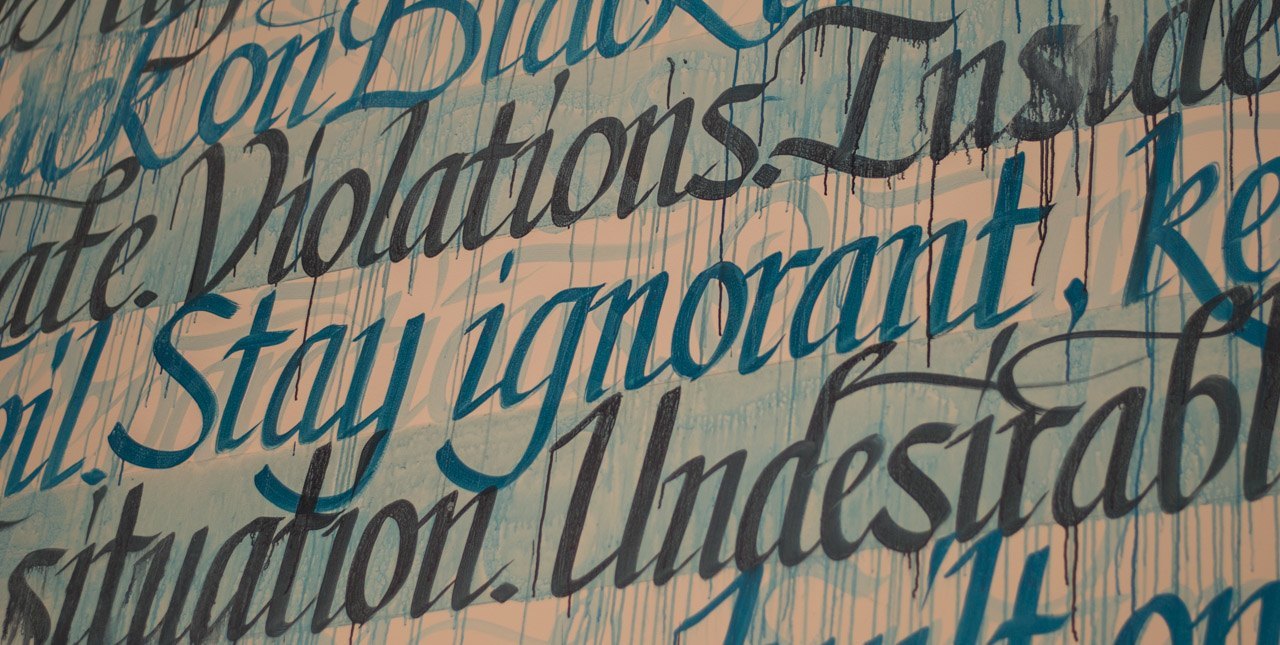 on Black
Violations. Inside
Stay ignorant, ke
situation. Undesirabl